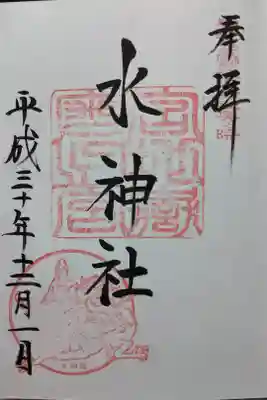 奉拝
水神社
平成三十年十二月一日